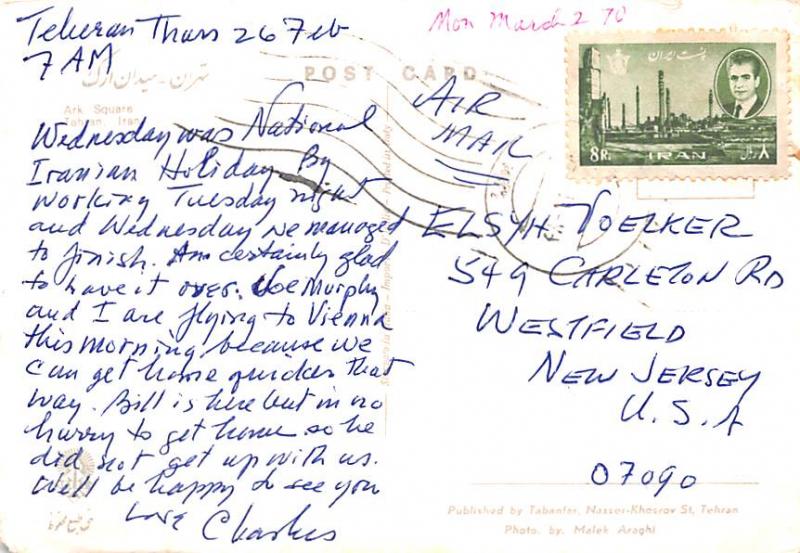 Teheran Thurs 26 Feb
7 AM
Mon March 2 70
تهران - میدان ارک
POST CARD
Ark Square
Tehran, Iran
AIR
MAIL
پست ایران
8R.
IRAN
۸ ریال
Wednesday was National
Iranian Holiday By
working Tuesday night
and Wednesday we managed
to finish. Am certainly glad
to have it over. Joe Murphy
and I are flying to Vienna
this morning because we
can get home quicker that
way. Bill is here but in no
hurry to get home so he
did not get up with us.
Will be happy to see you
Love Charles
Printed in Italy
ELSYH VOELKER
549 CARLETON RD
WESTFIELD
NEW JERSEY
U.S.A
07090
Published by Tabanfar, Nasser-Khosrov St, Tehran
Photo. by. Malek Araghi